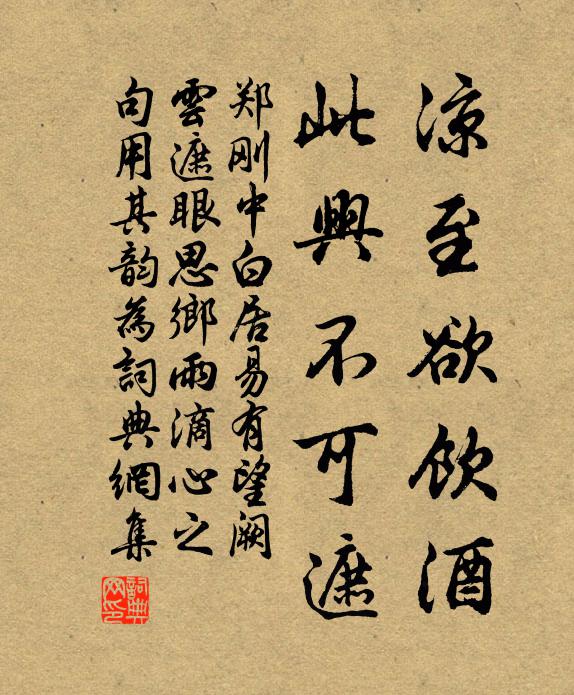 涼至欲飲酒
此興不可遮
郑刚中白居易有望阙
雲遮眼思鄉雨滴心之
句用其韵為詞典網集
詞典网印